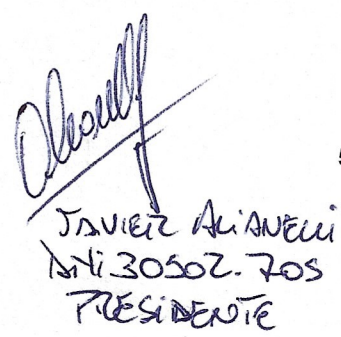 JAVIER ALIANELLI
DNI 30502.705
PRESIDENTE